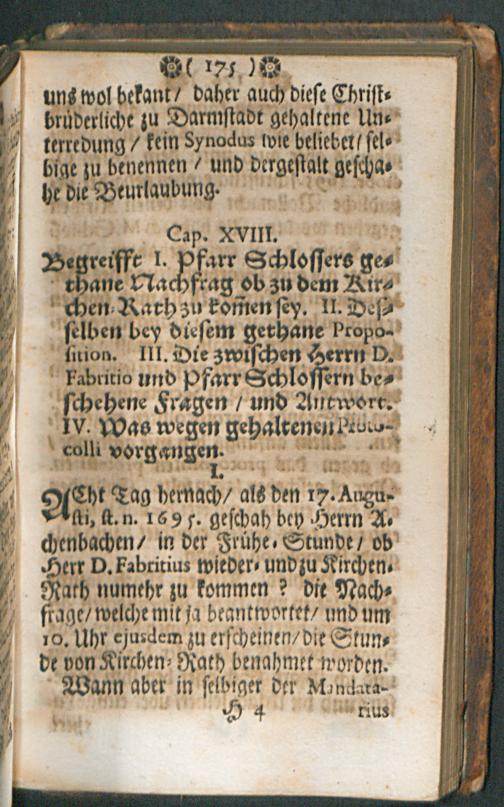 ( 175 )
uns wol bekant / daher auch diese Christ-
brüderliche zu Darmstadt gehaltene Un-
terredung / kein Synodus wie beliebet / sel-
bige zu benennen / und dergestalt gescha-
he die Beurlaubung.
Cap. XVIII.
Begreifft I. Pfarr Schlossers ge-
thane Nachfrag ob zu dem Kir-
chen-Rath zu kom̃en sey. II. Des-
selben bey diesem gethane Propo-
sition. III. Die zwischen Herrn D.
Fabritio und Pfarr Schlossern be-
schehene Fragen / und Antwort.
IV. Was wegen gehaltenen Proto-
colli vorgangen.
I.
ACht Tag hernach / als den 17. Augu-
sti, st. n. 1695. geschah bey Herrn A-
chenbachen / in der Frühe-Stunde / ob
Herr D. Fabritius wieder- und zu Kirchen-
Rath numehr zu kommen ? die Nach-
frage / welche mit ja beantwortet / und um
10. Uhr ejusdem zu erscheinen / die Stun-
de von Kirchen-Rath benahmet worden.
Wann aber in selbiger der Mandata-
H 4 rius